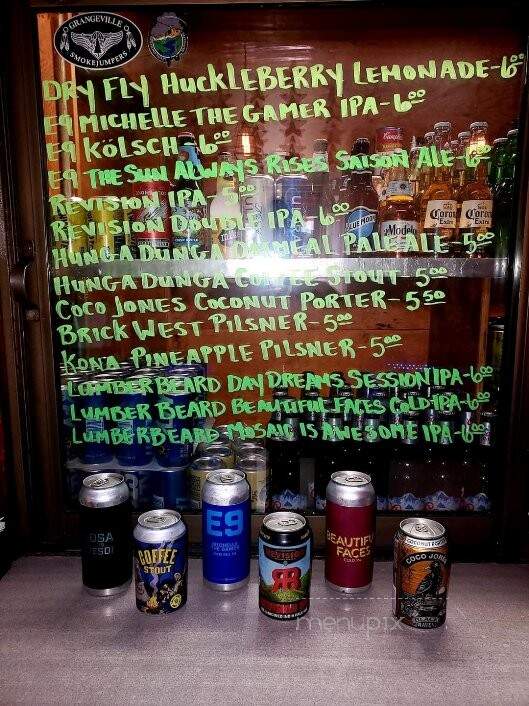 GRANGEVILLE
SMOKEJUMPERS
DRY FLY HUCKLEBERRY LEMONADE-6⁰⁰
E9 MICHELLE THE GAMER IPA-6⁰⁰
E9 KÖLSCH-6⁰⁰
E9 THE SUN ALWAYS RISES SAISON ALE-6⁰⁰
REVISION IPA-5⁰⁰
REVISION DOUBLE IPA-6⁰⁰
HUNGA DUNGA OATMEAL PALE ALE-5⁰⁰
HUNGA DUNGA COFFEE STOUT-5⁰⁰
COCO JONES COCONUT PORTER-5⁵⁰
BRICK WEST PILSNER-5⁰⁰
KONA PINEAPPLE PILSNER-5⁰⁰
LUMBERBEARD DAY DREAMS SESSION IPA-6⁰⁰
LUMBER BEARD BEAUTIFUL FACES COLD IPA-6⁰⁰
LUMBERBEARD MOSAIC IS AWESOME IPA-6⁰⁰
BLUE MOON
Modelo
Corona
Extra
Corona
Extra
COFFEE
STOUT
E9
MICHELLE
THE GAMER
REVISION
BEAUTIFUL
FACES
COLD IPA
COCO JONES
menupix